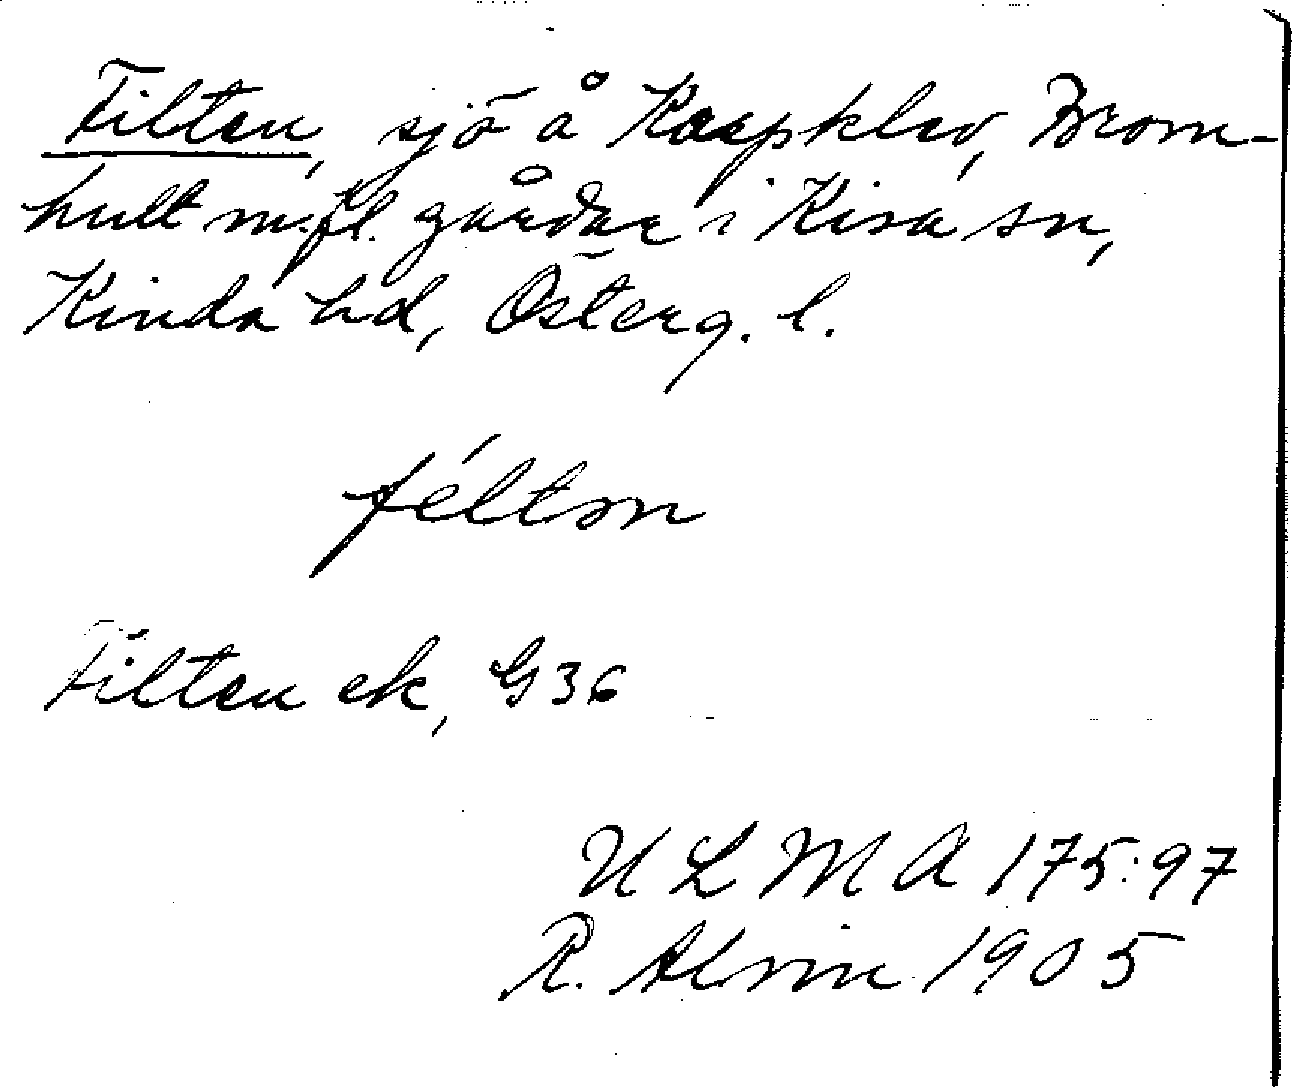 Filten, sjö å Kaspklev, Brom-
hult m.fl. gårdar i Kisa sn,
Kinda hd, Österg. l.
féltɷn
Filten ek, G36
ULMA 175:97
R. Alvin 1905